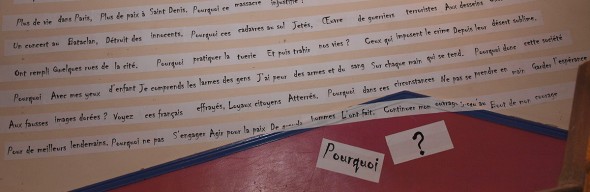 Plus de vie dans Paris, Plus de paix à Saint Denis, Pourquoi ce massacre injustifié ?
Un concert au Bataclan, Détruit des innocents, Pourquoi ces cadavres au sol Jetés, Œuvre de guerriers terroristes Aux desseins
Ont rempli Quelques rues de la cité. Pourquoi pratiquer la tuerie Et puis trahir nos vies ? Ceux qui imposent le crime Depuis leur désert sublime.
Pourquoi Avec mes yeux d'enfant Je comprends les larmes des gens J'ai peur des armes et du sang Sur chaque main qui se tend. Pourquoi donc cette société
Aux fausses images dorées ? Voyez ces français effrayés, Loyaux citoyens Atterrés. Pourquoi dans ces circonstances Ne pas se prendre en main Garder l'espérance
Pour de meilleurs lendemains. Pourquoi ne pas S'engager Agir pour la paix De grands hommes L'ont fait. Continuer mon ouvrage Jusqu'au Bout de mon courage
Pourquoi ?